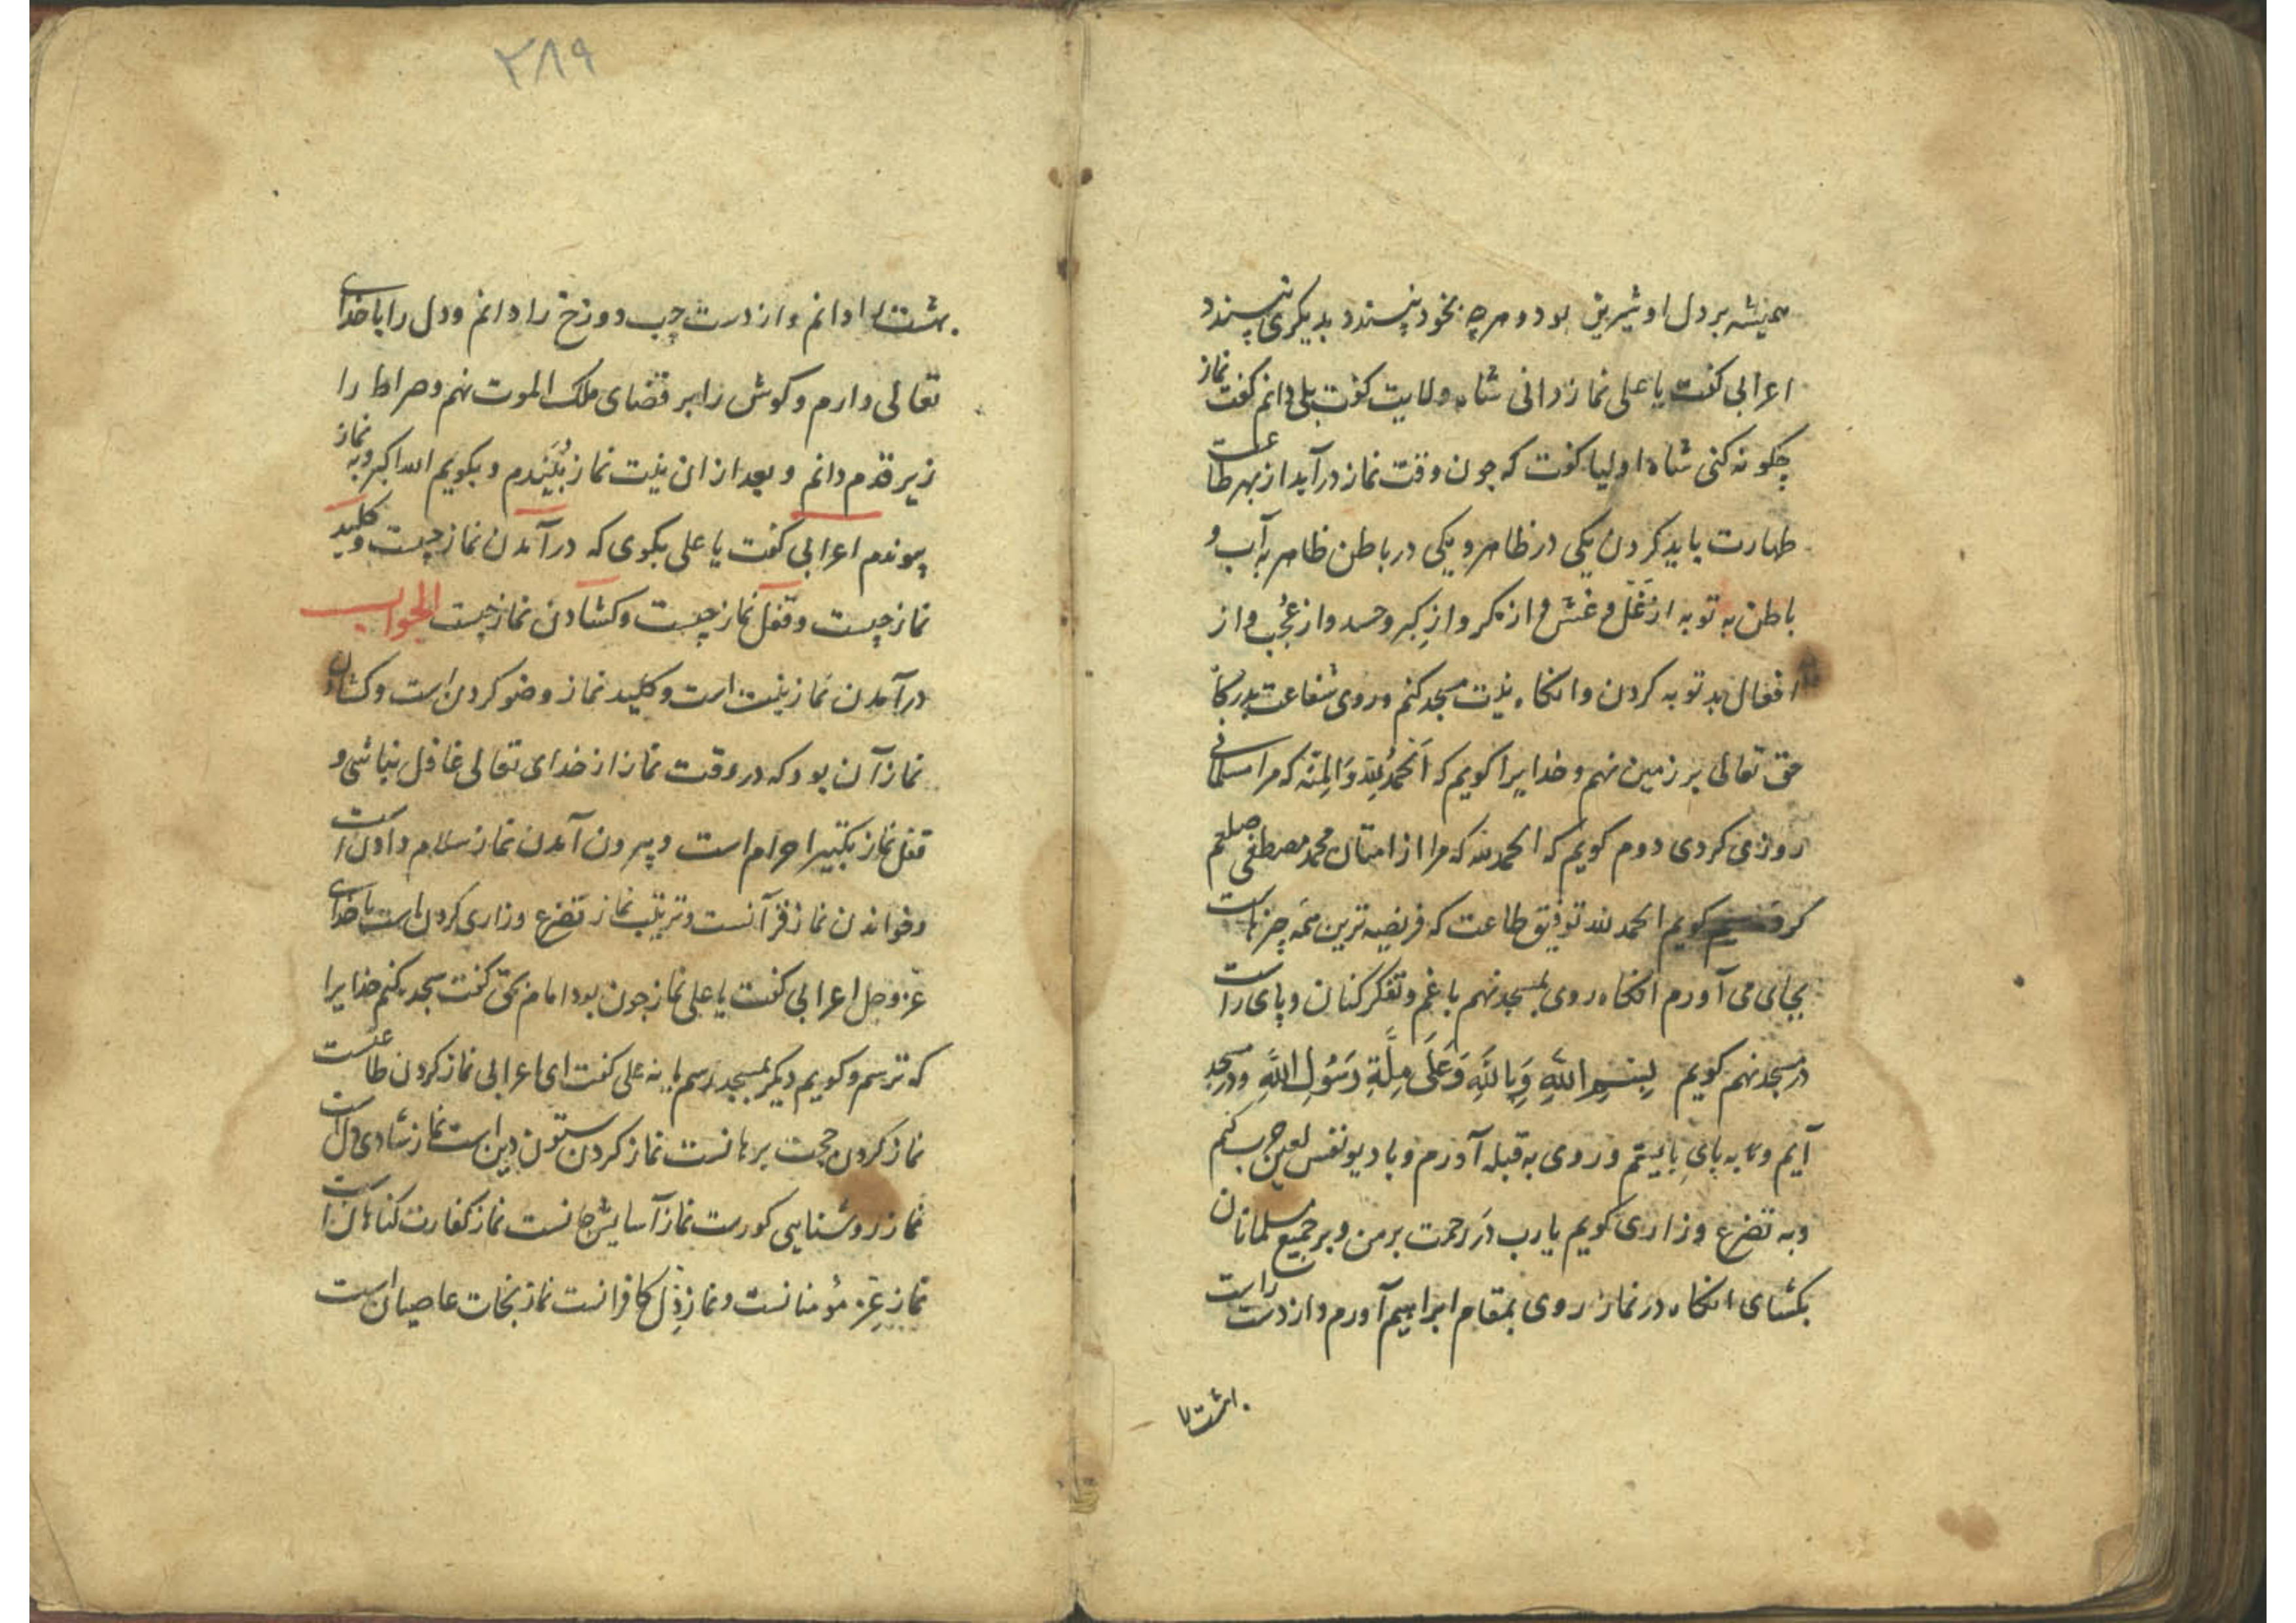 همیشه بر دل او شیرین بود و هرچه بخود نپسندد بدیکری نپسندد
اعرابی کفت یا علی نماز دانی شاه ولایت کفت بلی دانم کفت نماز
چکونه کنی شاه اولیا کفت که چون وقت نماز درآید از بهر طاعت
طهارت باید کردن یکی در ظاهر و یکی در باطن ظاهر به آب و
باطن به توبه از غل و غش و از مکر و از کبر و حسد و از عجب و از
افعال بد توبه کردن وانکاه نیت مسجد کنم و روی شفاعت بدرکاه
حق تعالی بر زمین نهم و خدایرا کویم که اَلحمدُ لِلّه وَالمِنّه که مرا مسلمانی
روزی کردی دوم کویم که الحمد لله که مرا از امتان محمد مصطفی صلعم
کرد کویم الحمد لله توفیق طاعت که فریضه ترین همه چیزهاست
بجای می آورم انکاه روی بمسجد نهم با غم و تفکر کنان و پای راست
در مسجد نهم کویم بِسْمِ اللهِ وَبِاللهِ وَعَلَى مِلَّةِ رَسُولِ اللهِ و در مسجد
آیم و به پای بایستم و روی به قبله آورم و با دیو نفس لعین حرب کنم
و به تضرع و زاری کویم یا رب در رحمت بر من و بر جمیع مسلمانان
بکشای انکاه در نماز روی بمقام ابراهیم آورم و از دست راست
بهشت را
۲۸۹
بهشت را دانم و از دست چپ دوزخ را دانم و دل را با خدای
تعالی دارم و کوش را بر قضای ملک الموت نهم و صراط را
زیر قدم دانم و بعد از ان نیت نماز بُبَندم و بکویم الله اکبر و به نماز
پیوندم اعرابی کفت یا علی بکوی که درآمدن نماز چیست و کلید
نماز چیست و قفل نماز چیست و کشادن نماز چیست الجواب
درآمدن نماز نیت است و کلید نماز وضو کردن است و کشادن
نماز آن بود که در وقت نماز از خدای تعالی غافل نباشی و
قفل نماز تکبیر احرام است و بیرون آمدن نماز سلام دادن است
و خواندن نماز قرآنست و ترتیب نماز تضرع و زاری کردن است با خدای
عز وجل اعرابی کفت یا علی نماز چون بود امام بحق کفت سجده کنم خدایرا
که ترسم و کویم دیکر بمسجد رسم یا نه علی کفت ای اعرابی نماز کردن طاعتست
نماز کردن حجت برهانست نماز کردن ستون دین است نماز شادی دل است
نماز روشنایی کورست نماز آسایش جانست نماز کفارت کناهان است
نماز عِزّ مؤمنانست و نماز ذِل کافرانست نماز نجات عاصیان است